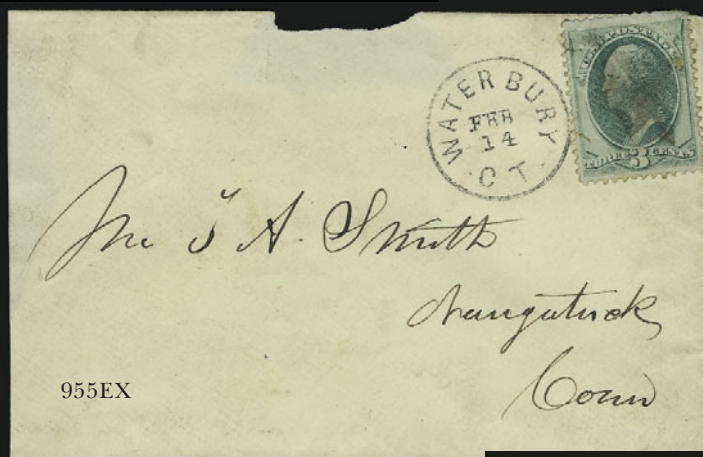 WATERBURY
FEB
14
CT.
THREE 3 CENTS
Mr T A. Smith
Naugatuck
Conn
955EX